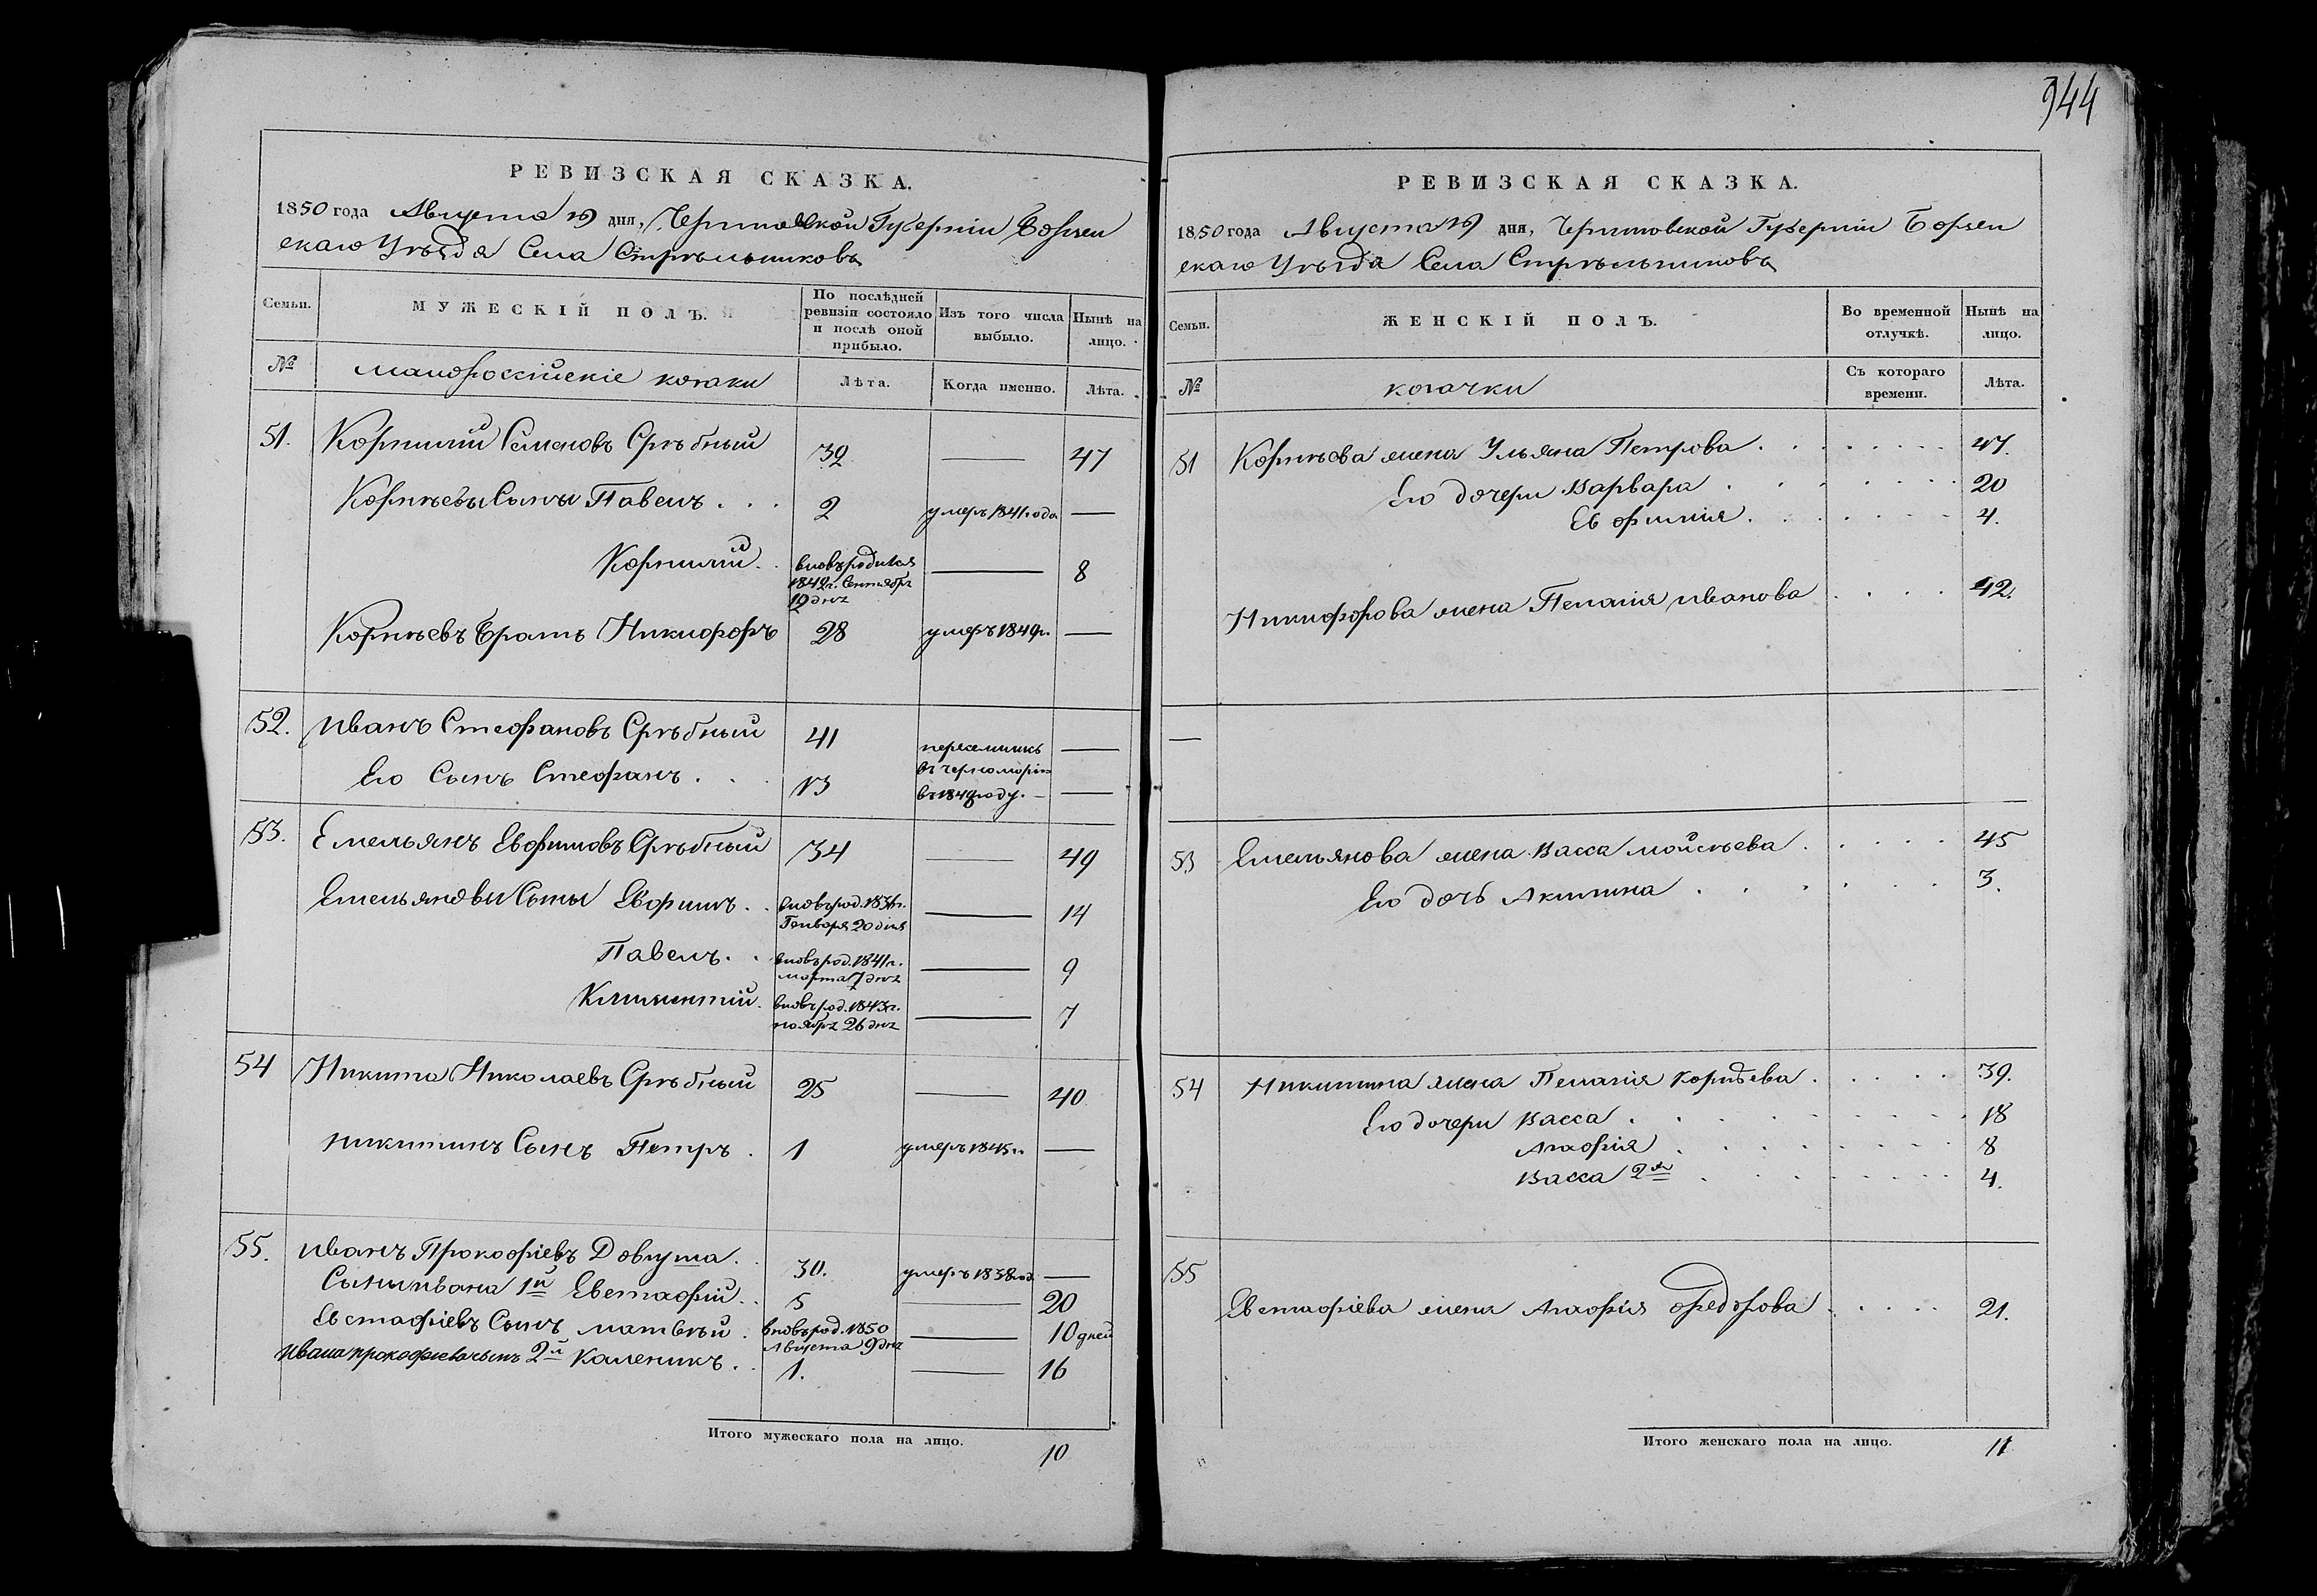 944
РЕВИЗСКАЯ СКАЗКА.
1850 года Августа 19 дня, Черниговской Губерніи Борзен
скаго Уѣзда Села Стрѣльниковъ
Семьи. МУЖЕСКІЙ ПОЛЪ. По послѣдней ревизіи состояло и послѣ оной прибыло. Изъ того числа выбыло. Нынѣ на лицо.
№ малороссійскіе козаки Лѣта. Когда именно. Лѣта.
51. Корнилій Семеновъ Срѣбный 39 — 47
Корнѣевы Сыны Павелъ . . . 2 умеръ 1841 года —
Корнилій . . вновь родился 1842 г. Сентября 19 дня — 8
Корнѣевъ братъ Никифоръ 28 умеръ 1849 г. —
52. Иванъ Стефановъ Срѣбный 41 —
Его Сынъ Стефанъ . . . 13 —
въ черноморію
53. Емельянъ Евфимовъ Срѣбный 34 — 49
Емельяновы Сыны Евфимъ . . вновь род. 1836 г. Генваря 20 дня — 14
Павелъ . . вновь род. 1841 г. марта 7 дня — 9
Климентій . вновь род. 1843 г. ноября 26 дня — 7
54 Никита Николаевъ Срѣбный 25 — 40
Никитинъ Сынъ Петръ . 1 умеръ 1845 г. —
55. Иванъ Прокофіевъ Довгуша . 30. умеръ 1838 год. —
Сыны Ивана 1й Евстафій . . 5 — 20
Евстафіевъ Сынъ матвѣй . вновь род. 1850 Августа 9 дня — 10 дней
Ивана прокофіева сынъ 2й Каленикъ . . 1. — 16
Итого мужескаго пола на лицо. 10
РЕВИЗСКАЯ СКАЗКА.
1850 года Августа 19 дня, Черниговской Губерніи Борзен
скаго Уѣзда Села Стрѣльниковъ
Семьи. ЖЕНСКІЙ ПОЛЪ. Во временной отлучкѣ. Нынѣ на лицо.
№ козачки Съ котораго времени. Лѣта.
51 Корнѣева жена Ульяна Петрова . . . 47.
Его дочери Варвара . . . 20
Евфимія . . . 4.
Никифорова жена Пелагія Иванова . . . 42.
—
53 Емельянова жена Васса мойсѣева . . . 45
Его дочь Акилина . . . 3.
54 Никитина жена Пелагія Корнѣева . . . 39.
Его дочери Васса . . . 18
Агафія . . . 8
Васса 2я . . . 4.
55 Евстафіева жена Агафія Федорова . . . 21.
Итого женскаго пола на лицо. 11